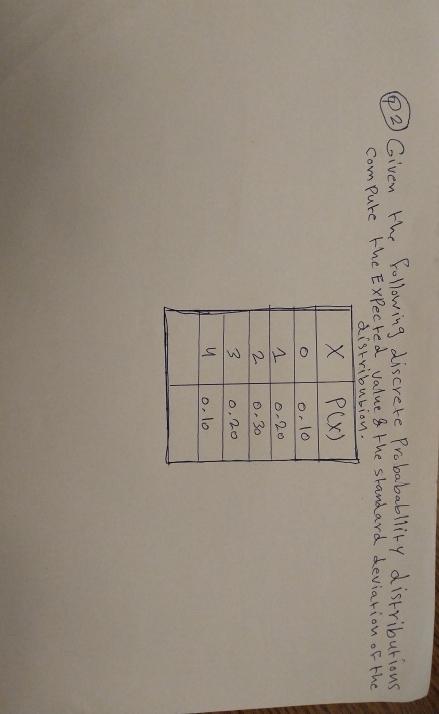 Q2) Given the following discrete Probabability distributions
compute the Expected value & the standard deviation of the
distribution.
X P(x)
0 0.10
1 0.20
2 0.30
3 0.20
4 0.10